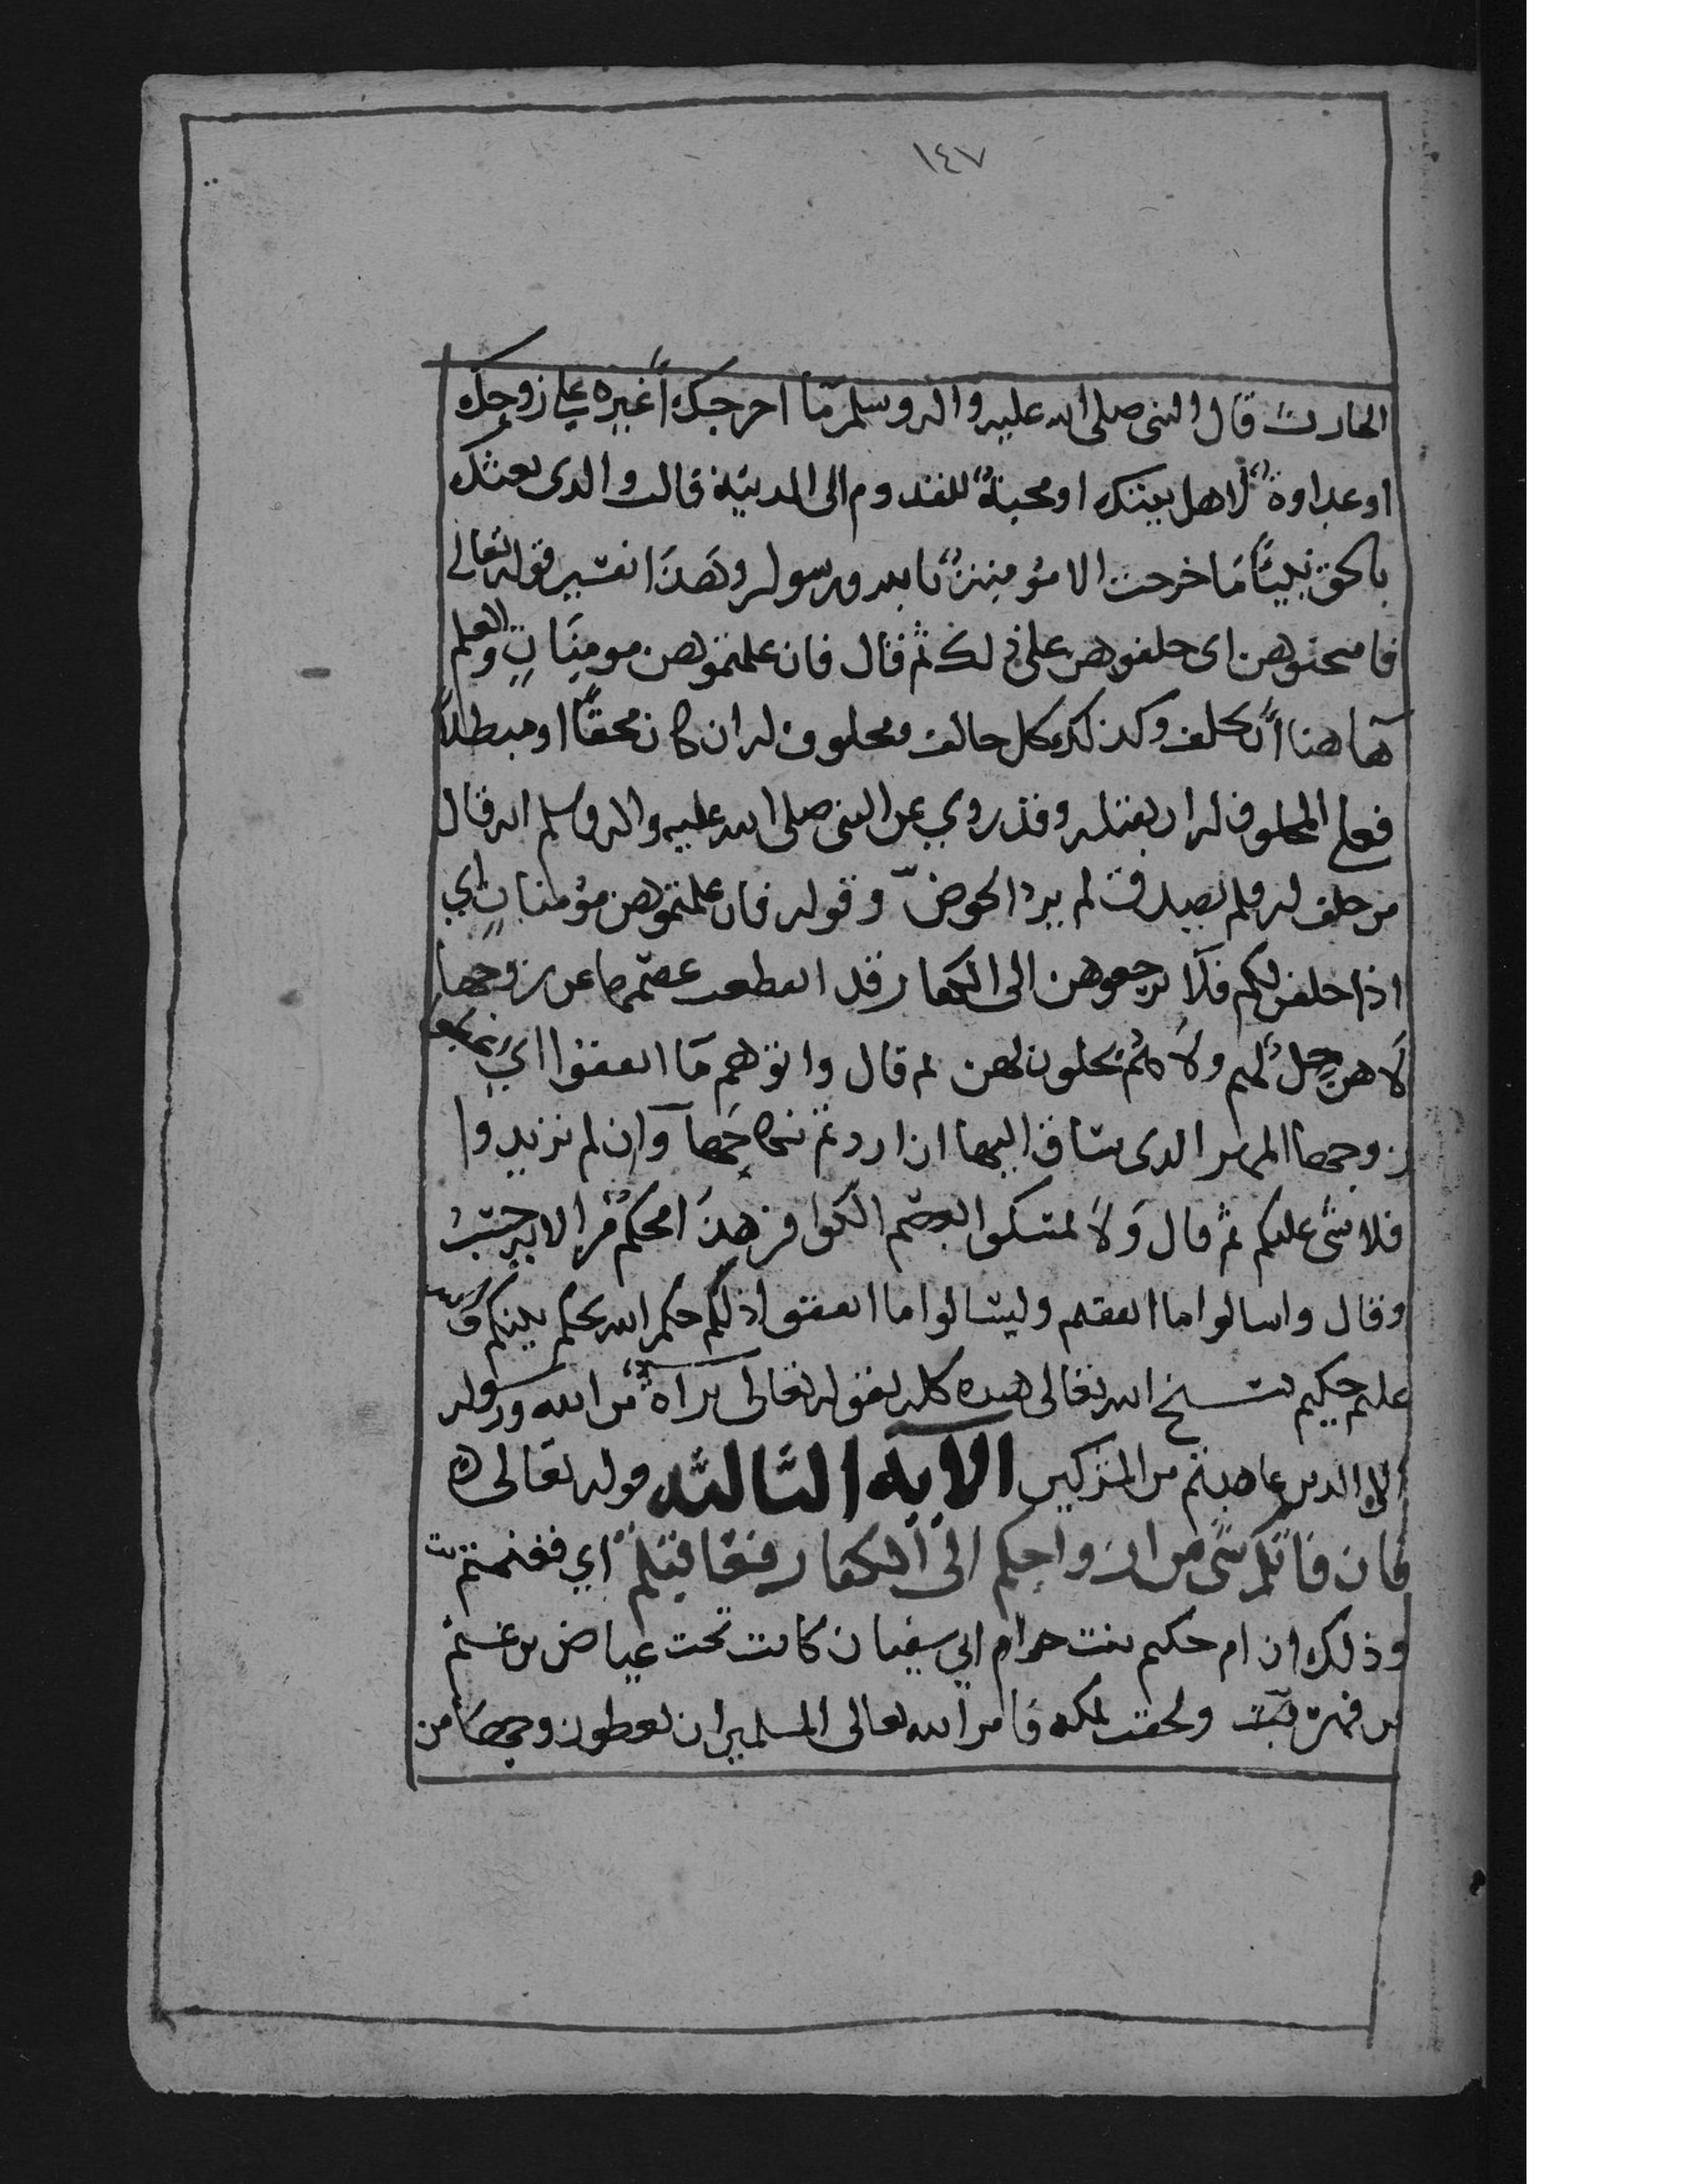 ١٤٧
الحارث قال النبي صلى الله عليه واله وسلم ما اخرجك أغيره علي زوجك
او عداوةً لاهل بيتك او محبةً للقدوم الى المدينة قالت والدي بعثك
بالحق نبيًّا ما خرجت الا مؤمنةً بالله ورسوله وهذا تفسير قوله تعالى
فامتحنوهن اى حلفوهن على ذلك ثم قال فان علمتموهن مومنات والعلم
هاهنا ان تحلف وكذلك كل حالف ومحلوف له ان كان محقًّا او مبطلاً
فعلي المحلوف له ان يقبله وقد روي عن النبي صلى الله عليه واله وسلم انه قال
من حلف له فلم يصدق لم يرد الحوض وقوله فان علمتموهن مؤمنات اي
اذا حلفن لكم فلا ترجعوهن الى الكفار قد انقطعت عصمتها عن زوجها
لا هن حل لهم ولا هم يحلون لهن ثم قال واتوهم ما انفقوا اي
زوجها المهر الدى ساق اليها ان اردتم نكاحها وان لم تريدوا
فلا شى عليكم ثم قال ولا تمسكوا بعصم الكوافر هذا محكم من الايه
وقال واسالوا ما انفقتم وليسالوا ما انفقوا ذلكم حكم الله يحكم بينكم
عليم حكيم نسخ الله تعالى هده كله بقوله تعالى براةٌ من الله ورسوله
الى الدين عاهدتم من المشركين الايه الثالثه قوله تعالى
فان فاتكم شى من ازواجكم الى الكفار فعاقبتم اي فغنمتم
وذلك ان ام حكيم بنت ابي سفيان كانت تحت عياض بن غنم
ولحقت بمكه فامر الله تعالى المسلمين ان يعطوا زوجها من